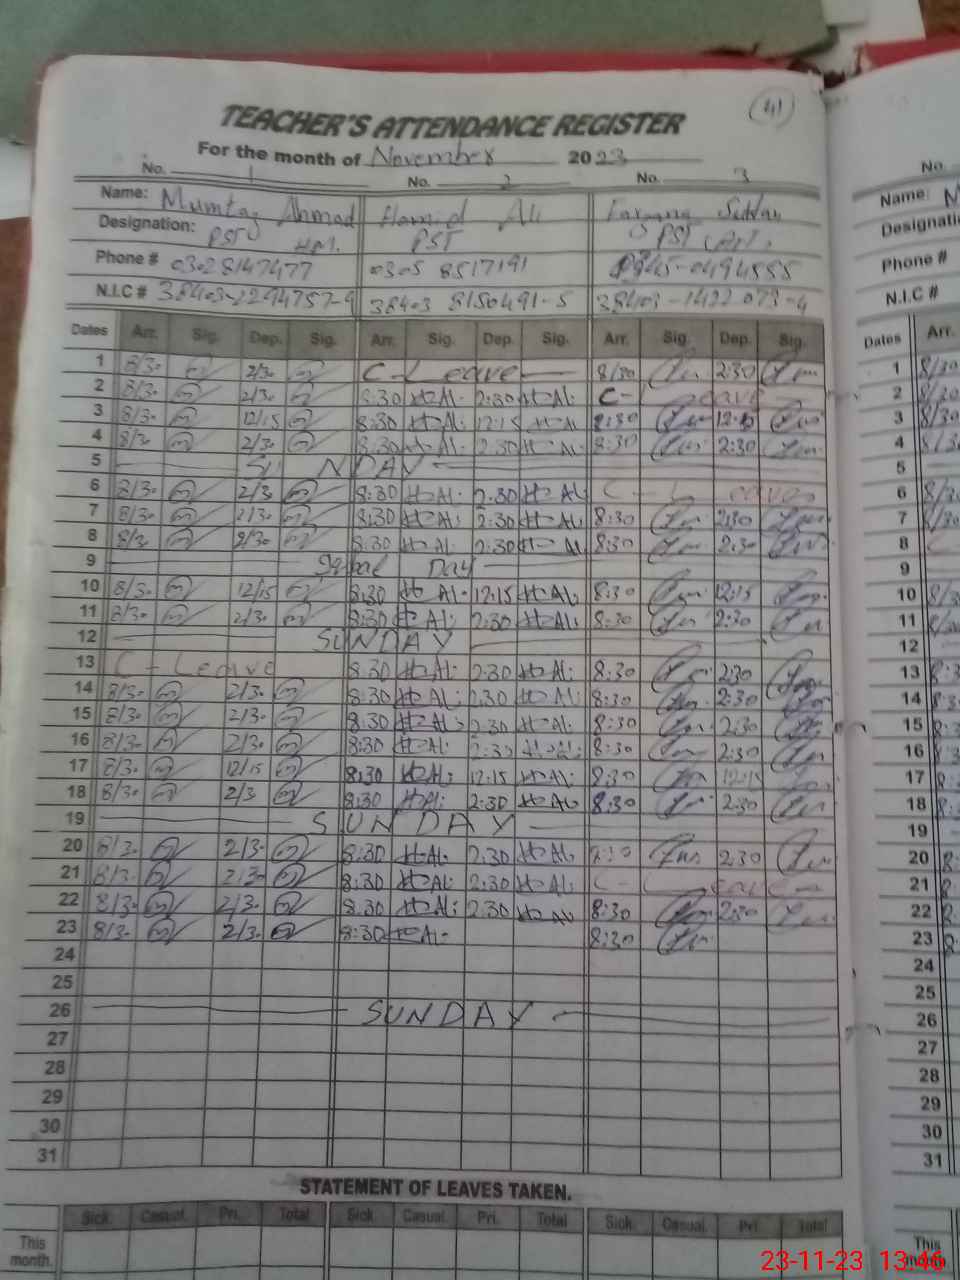 41
TEACHER'S ATTENDANCE REGISTER
For the month of November 2023
No. 1 No. 2 No. 3
Name: Mumtaz Ahmad Hamid Ali Sultan
Designation: PST H.M. PST PST
Phone # 03028147477 0305 8517191
N.I.C # 38403-2294757-9 38403 8150491-5 38403-1422073-4
Dates Arr. Sig. Dep. Sig. Arr. Sig. Dep. Sig. Arr. Sig. Dep. Sig.
1 8/30 2/30 C-Leave 8/30 2:30
2 8/30 2/30 8:30 H Al. 2:30 H Al. C-Leave
3 8/30 12/15 8:30 H Al. 12:15 H Al 8:30 12:15
4 8/30 2/30 8:30 H Al. 2:30 H Al. 8:30 2:30
5 SUNDAY
6 8/30 2/3 8:30 H Al. 2:30 H Al. C-Leave
7 8/30 2/30 8:30 H Al. 2:30 H Al. 8:30 2:30
8 8/3 2/30 8:30 H Al. 2:30 H Al 8:30 2:30
9 Iqbal Day
10 8/30 12/15 8:30 H Al. 12:15 H Al. 8:30 12:15
11 8/30 2/30 8:30 H Al. 2:30 H Al. 8:30 2:30
12 SUNDAY
13 C-Leave 8:30 H Al. 2:30 H Al. 8:30 2:30
14 8/30 2/30 8:30 H Al. 2:30 H Al. 8:30 2:30
15 8/30 2/30 8:30 H Al. 2:30 H Al. 8:30 2:30
16 8/30 2/30 8:30 H Al. 2:30 H Al. 8:30 2:30
17 8/30 12/15 8:30 H Al. 12:15 H Al. 8:30 12:15
18 8/30 2/3 8:30 H Al. 2:30 H Al. 8:30 2:30
19 SUNDAY
20 8/30 2/30 8:30 H Al. 2:30 H Al. 8:30 2:30
21 8/30 2/30 8:30 H Al. 2:30 H Al. C-Leave
22 8/30 2/30 8:30 H Al. 2:30 H Al 8:30 2:30
23 8/30 2/30 8:30 H Al. 8:30
24
25
26 SUNDAY
27
28
29
30
31
STATEMENT OF LEAVES TAKEN.
Sick. Casual. Pri. Total Sick. Casual. Pri. Total Sick. Casual. Pri. Total
This month.
No.
Name:
Designati
Phone #
N.I.C #
Dates Arr.
1 8/30
2 8/30
3 8/30
4 8/30
5
6
7 8/30
8
9
10 8/30
11
12
13
14
15
16
17
18
19
20
21
22
23
24
25
26
27
28
29
30
31
This month.
23-11-23 13:46